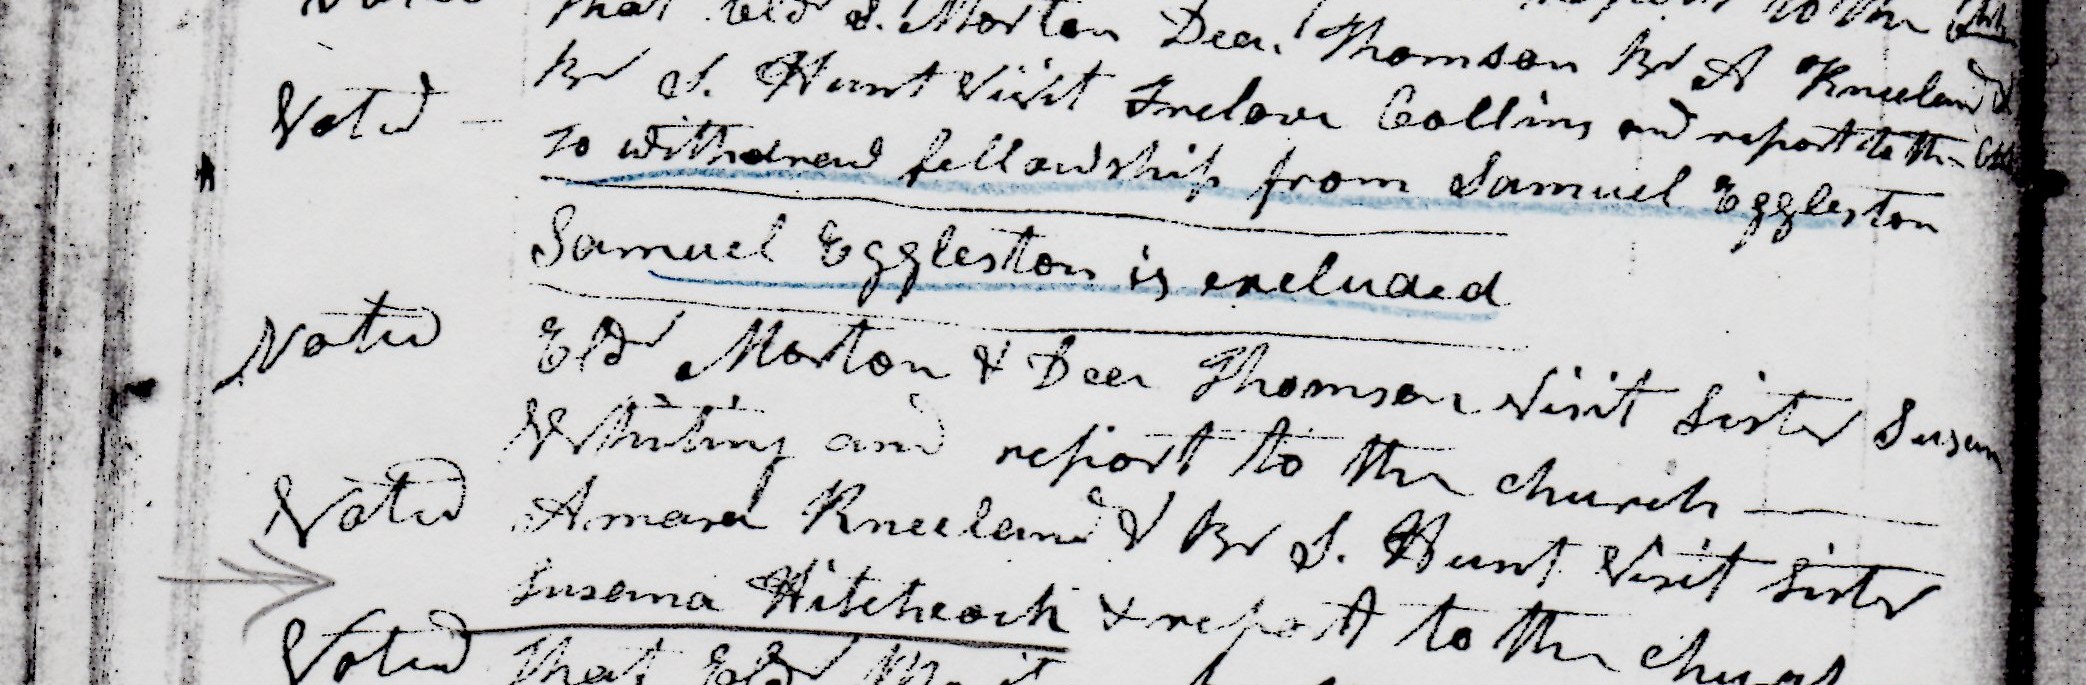 report to the
Voted that Eldr S. Morton Dea. Thomson Br A Kneeland &
Br S. Hunt visit Freelove Collins and report to the Chh
Voted - to withdraw fellowship from Samuel Eggleston
Samuel Eggleston is excluded
Voted Eldr Morton & Deac Thomson visit Sister Susan
Whiting and report to the church
Voted Amasa Kneeland & Br S. Hunt visit sister
Susanna Hitchcock & report to the church
Voted that Eldr